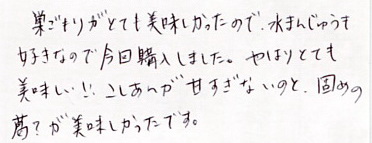 巣ごもりがとても美味しかったので、水まんじゅうも
好きなので今回購入しました。やはりとても
美味しい!! こしあんが甘すぎないのと、固めの
葛?が美味しかったです。